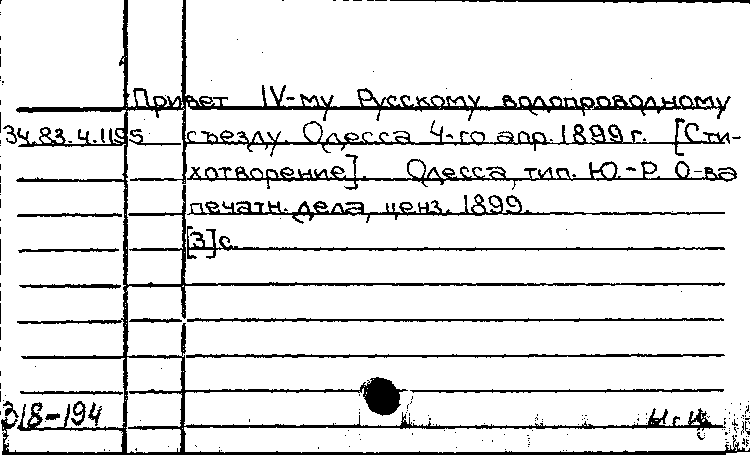 Привет IV-му Русскому водопроводному
34.83.4.1195 съезду. Одесса 4-го апр. 1899 г. [Сти-
хотворение]. Одесса, тип. Ю.-Р. О-ва
печатн. дела, ценз. 1899.
[3] с.
318-194